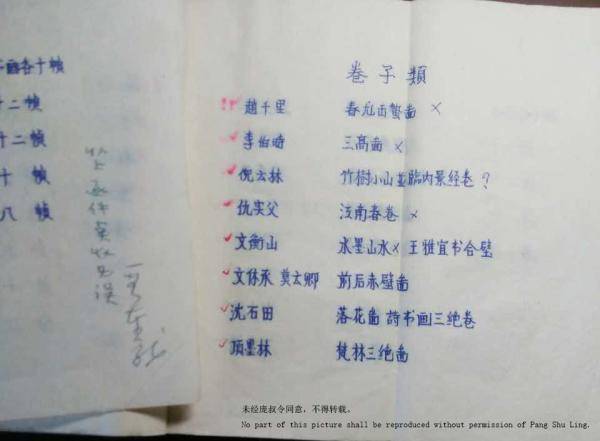 各十帧
十二帧
十二帧
十 帧
八 帧
卷子類
趙千里 春龙出蛰啚 ×
李伯時 三高啚 ×
倪云林 竹樹小山並臨内景经卷?
仇实父 江南春卷 ×
文衡山 水墨山水× 王雅宜书合璧
文休承 莫云卿 前后赤壁啚
沈石田 落花啚 詩书画三绝卷
项墨林 梵林三绝啚
未经庞叔令同意，不得转载。
No part of this picture shall be reproduced without permission of Pang Shu Ling.